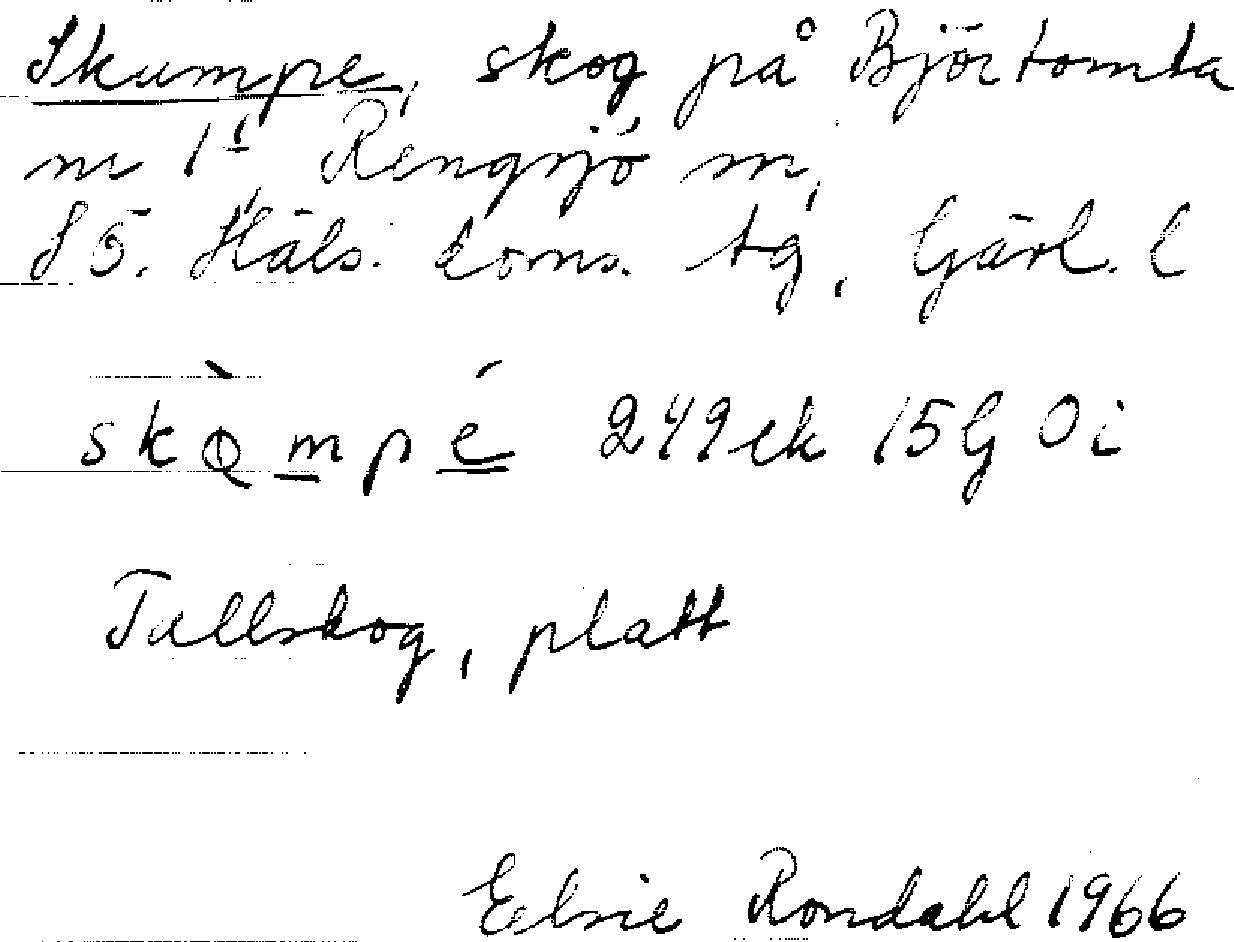 Skumpe, skog på Björtomta
nr 1¹ Rengsjö sn,
SÖ. Häls. doms. tg, Gävl. l
skò̜mpé 249ek 15G 0i
Tallskog, platt
Elsie Rondahl 1966